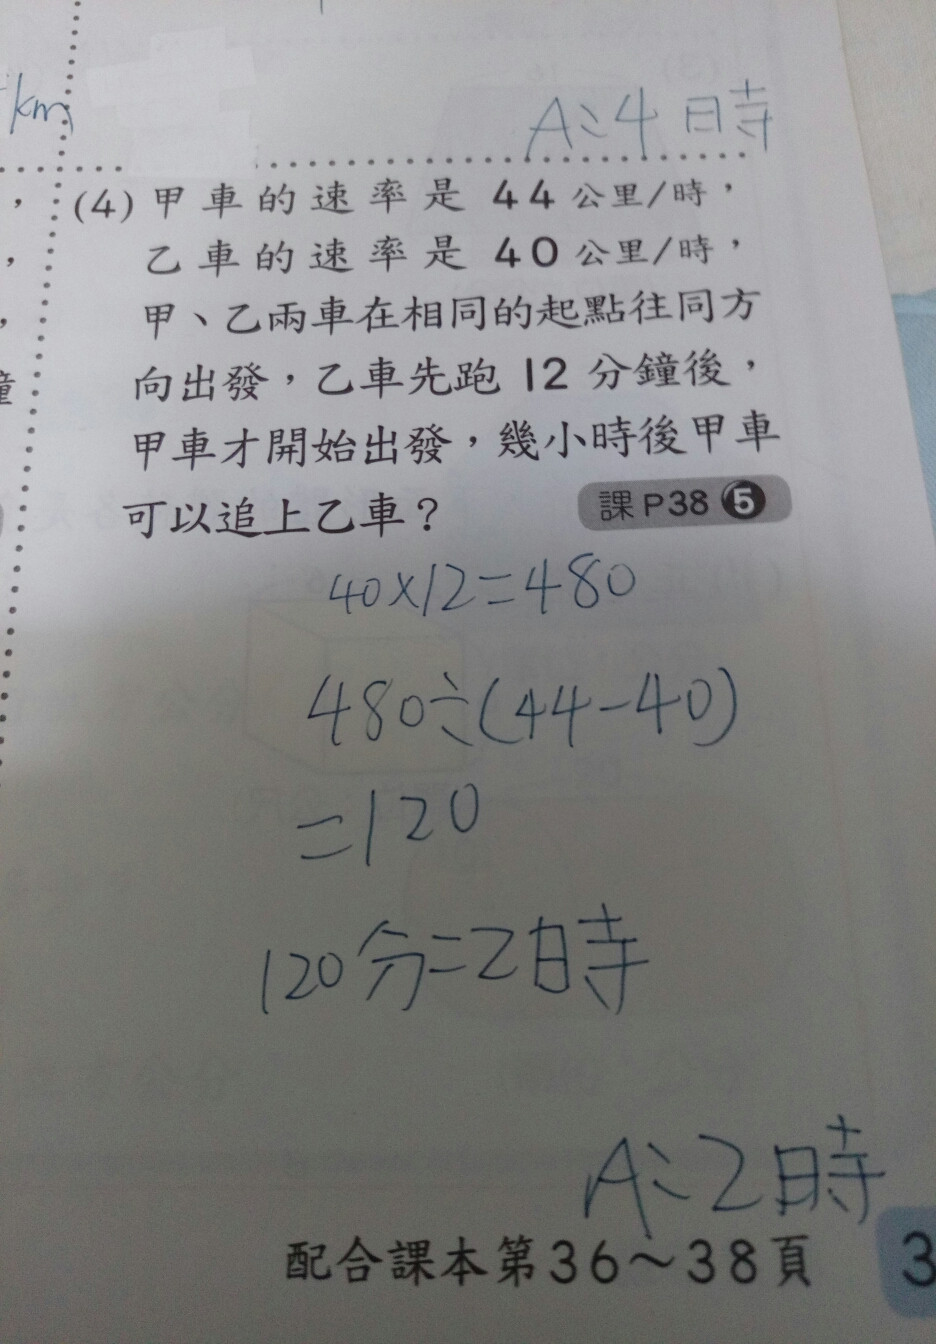 km
A:4時
(4)甲車的速率是44公里/時，
乙車的速率是40公里/時，
甲、乙兩車在相同的起點往同方
向出發，乙車先跑12分鐘後，
甲車才開始出發，幾小時後甲車
可以追上乙車？
課P38 5
40×12=480
480÷(44-40)
=120
120分=2時
A:2時
配合課本第36～38頁
3